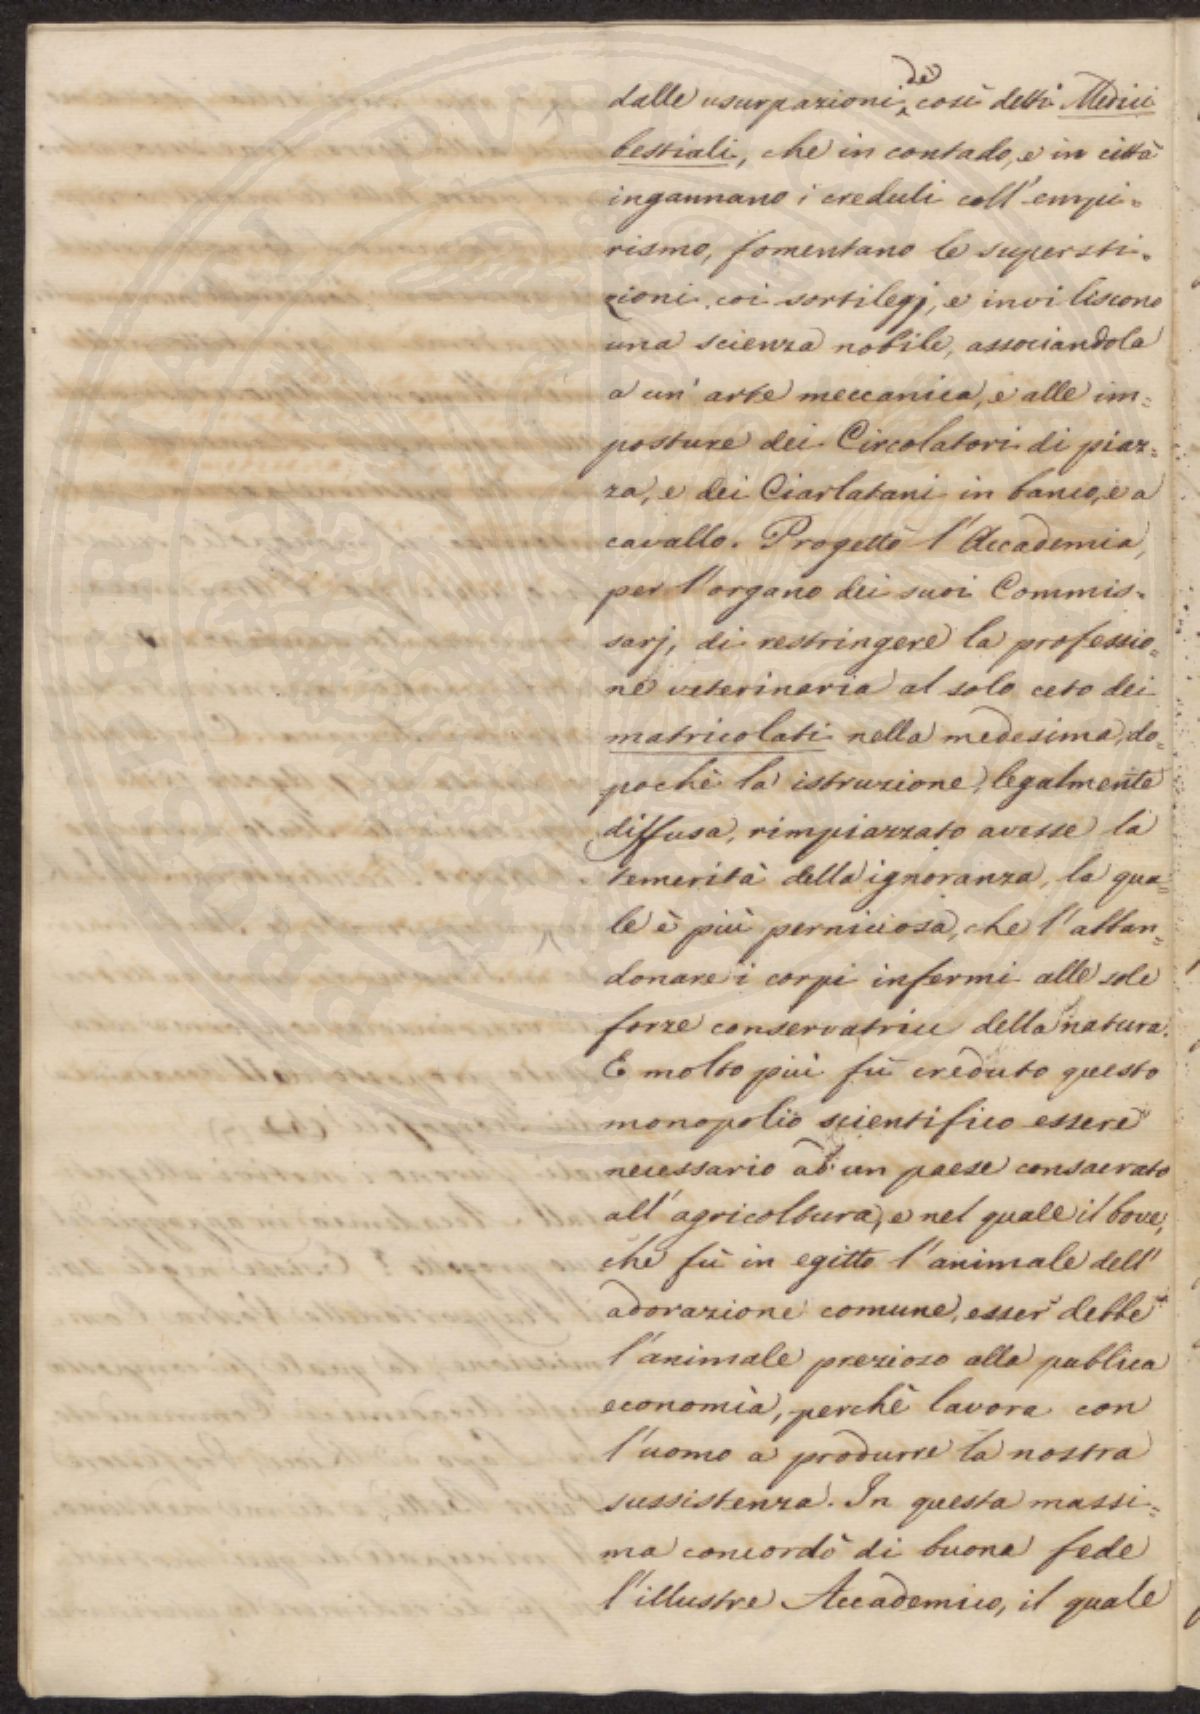 dalle usurpazioni de' così detti Medici
bestiali, che in contado, e in città
ingannano i creduli coll' empi=
rismo, fomentano le supersti=
zioni coi sortilegj, e inviliscono
una scienza nobile, associandola
a un' arte meccanica, e alle im=
posture dei Circolatori di piaz=
za, e dei Ciarlatani in banco, e a
cavallo. Progettò l'Accademia,
per l'organo dei suoi Commis=
sarj, di restringere la professio=
ne veterinaria al solo ceto dei
matricolati nella medesima, do=
pochè la istruzione, legalmente
diffusa, rimpiazzato avesse la
temerità della ignoranza, la qua=
le è più perniciosa, che l'abban=
donare i corpi infermi alle sole
forze conservatrici della natura.
E molto più fù creduto questo
monopolio scientifico essere
necessario ad un paese consacrato
all' agricoltura, e nel quale il bove,
che fù in egitto l'animale dell'
adorazione comune, esser debbe
l'animale prezioso alla publica
economìa, perchè lavora con
l'uomo a produrre la nostra
sussistenza. In questa massi=
ma concordò di buona fede
l'illustre Accademico, il quale